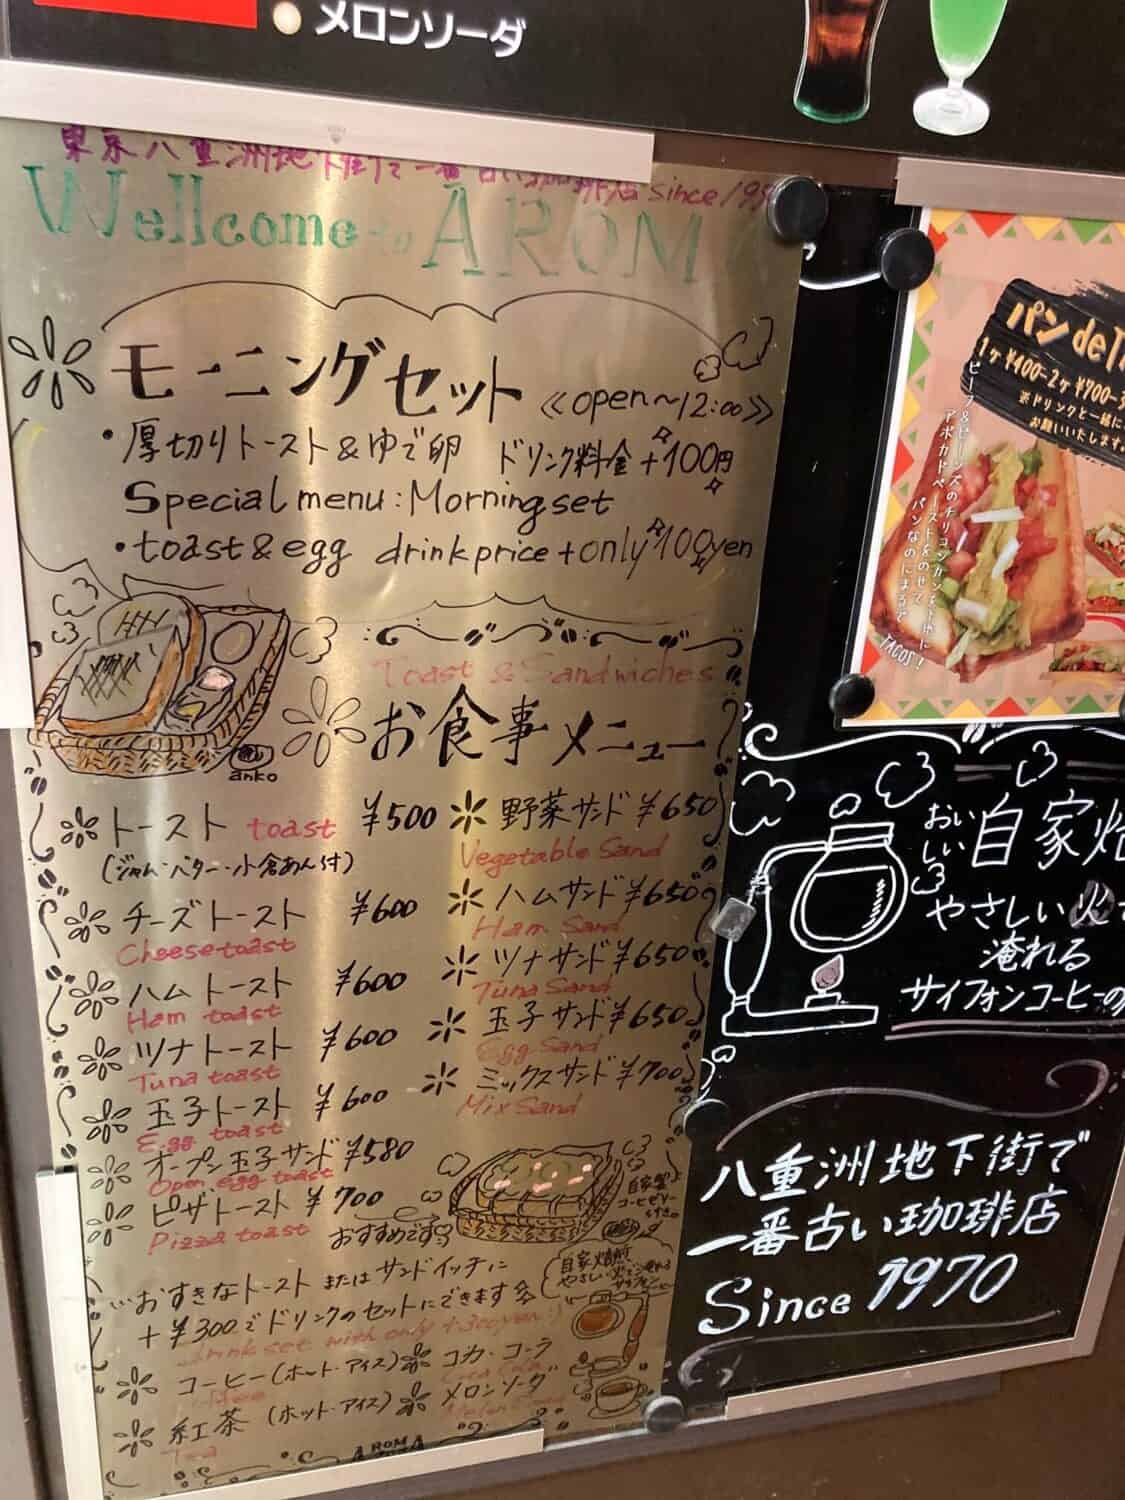 メロンソーダ
東京八重洲地下街で一番古い珈琲店 since 19
Wellcome to AROMA
モーニングセット
≪open〜12:00≫
・厚切りトースト&ゆで卵 ドリンク料金+100円
Special menu: Morning set
・toast & egg drink price + only 100yen
Toast & Sandwiches
お食事メニュー
anko
トースト toast ¥500
(ジャム・バター・小倉あん付)
チーズトースト ¥600
Cheese toast
ハムトースト ¥600
Ham toast
ツナトースト ¥600
Tuna toast
玉子トースト ¥600
Egg toast
オープン玉子サンド ¥580
Open egg toast
ピザトースト ¥700
Pizza toast
おすすめです
野菜サンド ¥650
Vegetable Sand
ハムサンド ¥650
Ham Sand
ツナサンド ¥650
Tuna Sand
玉子サンド ¥650
Egg Sand
ミックスサンド ¥700
Mix Sand
自家製
コーヒーゼリー
…おすきなトーストまたはサンドイッチに
+¥300でドリンクのセットにできます
drink set with only +300yen :)
自家焙煎
やさしい火で淹れる
サイフォンコーヒー
コーヒー(ホット・アイス)
Coffee
紅茶(ホット・アイス)
Tea
コカ・コーラ
Coca Cola
メロンソーダ
Melon Soda
AROMA
パン de TA
1ヶ¥400-2ヶ¥700-3
※ドリンクと一緒に
お願いいたします。
ビーフ&ビーンズのチリコンカンをトーストに
アボカドペーストをのせて
パンなのにまるで
TACOS!
おいしい
自家焙
やさしい火で
淹れる
サイフォンコーヒーの
八重洲地下街で
一番古い珈琲店
Since 1970